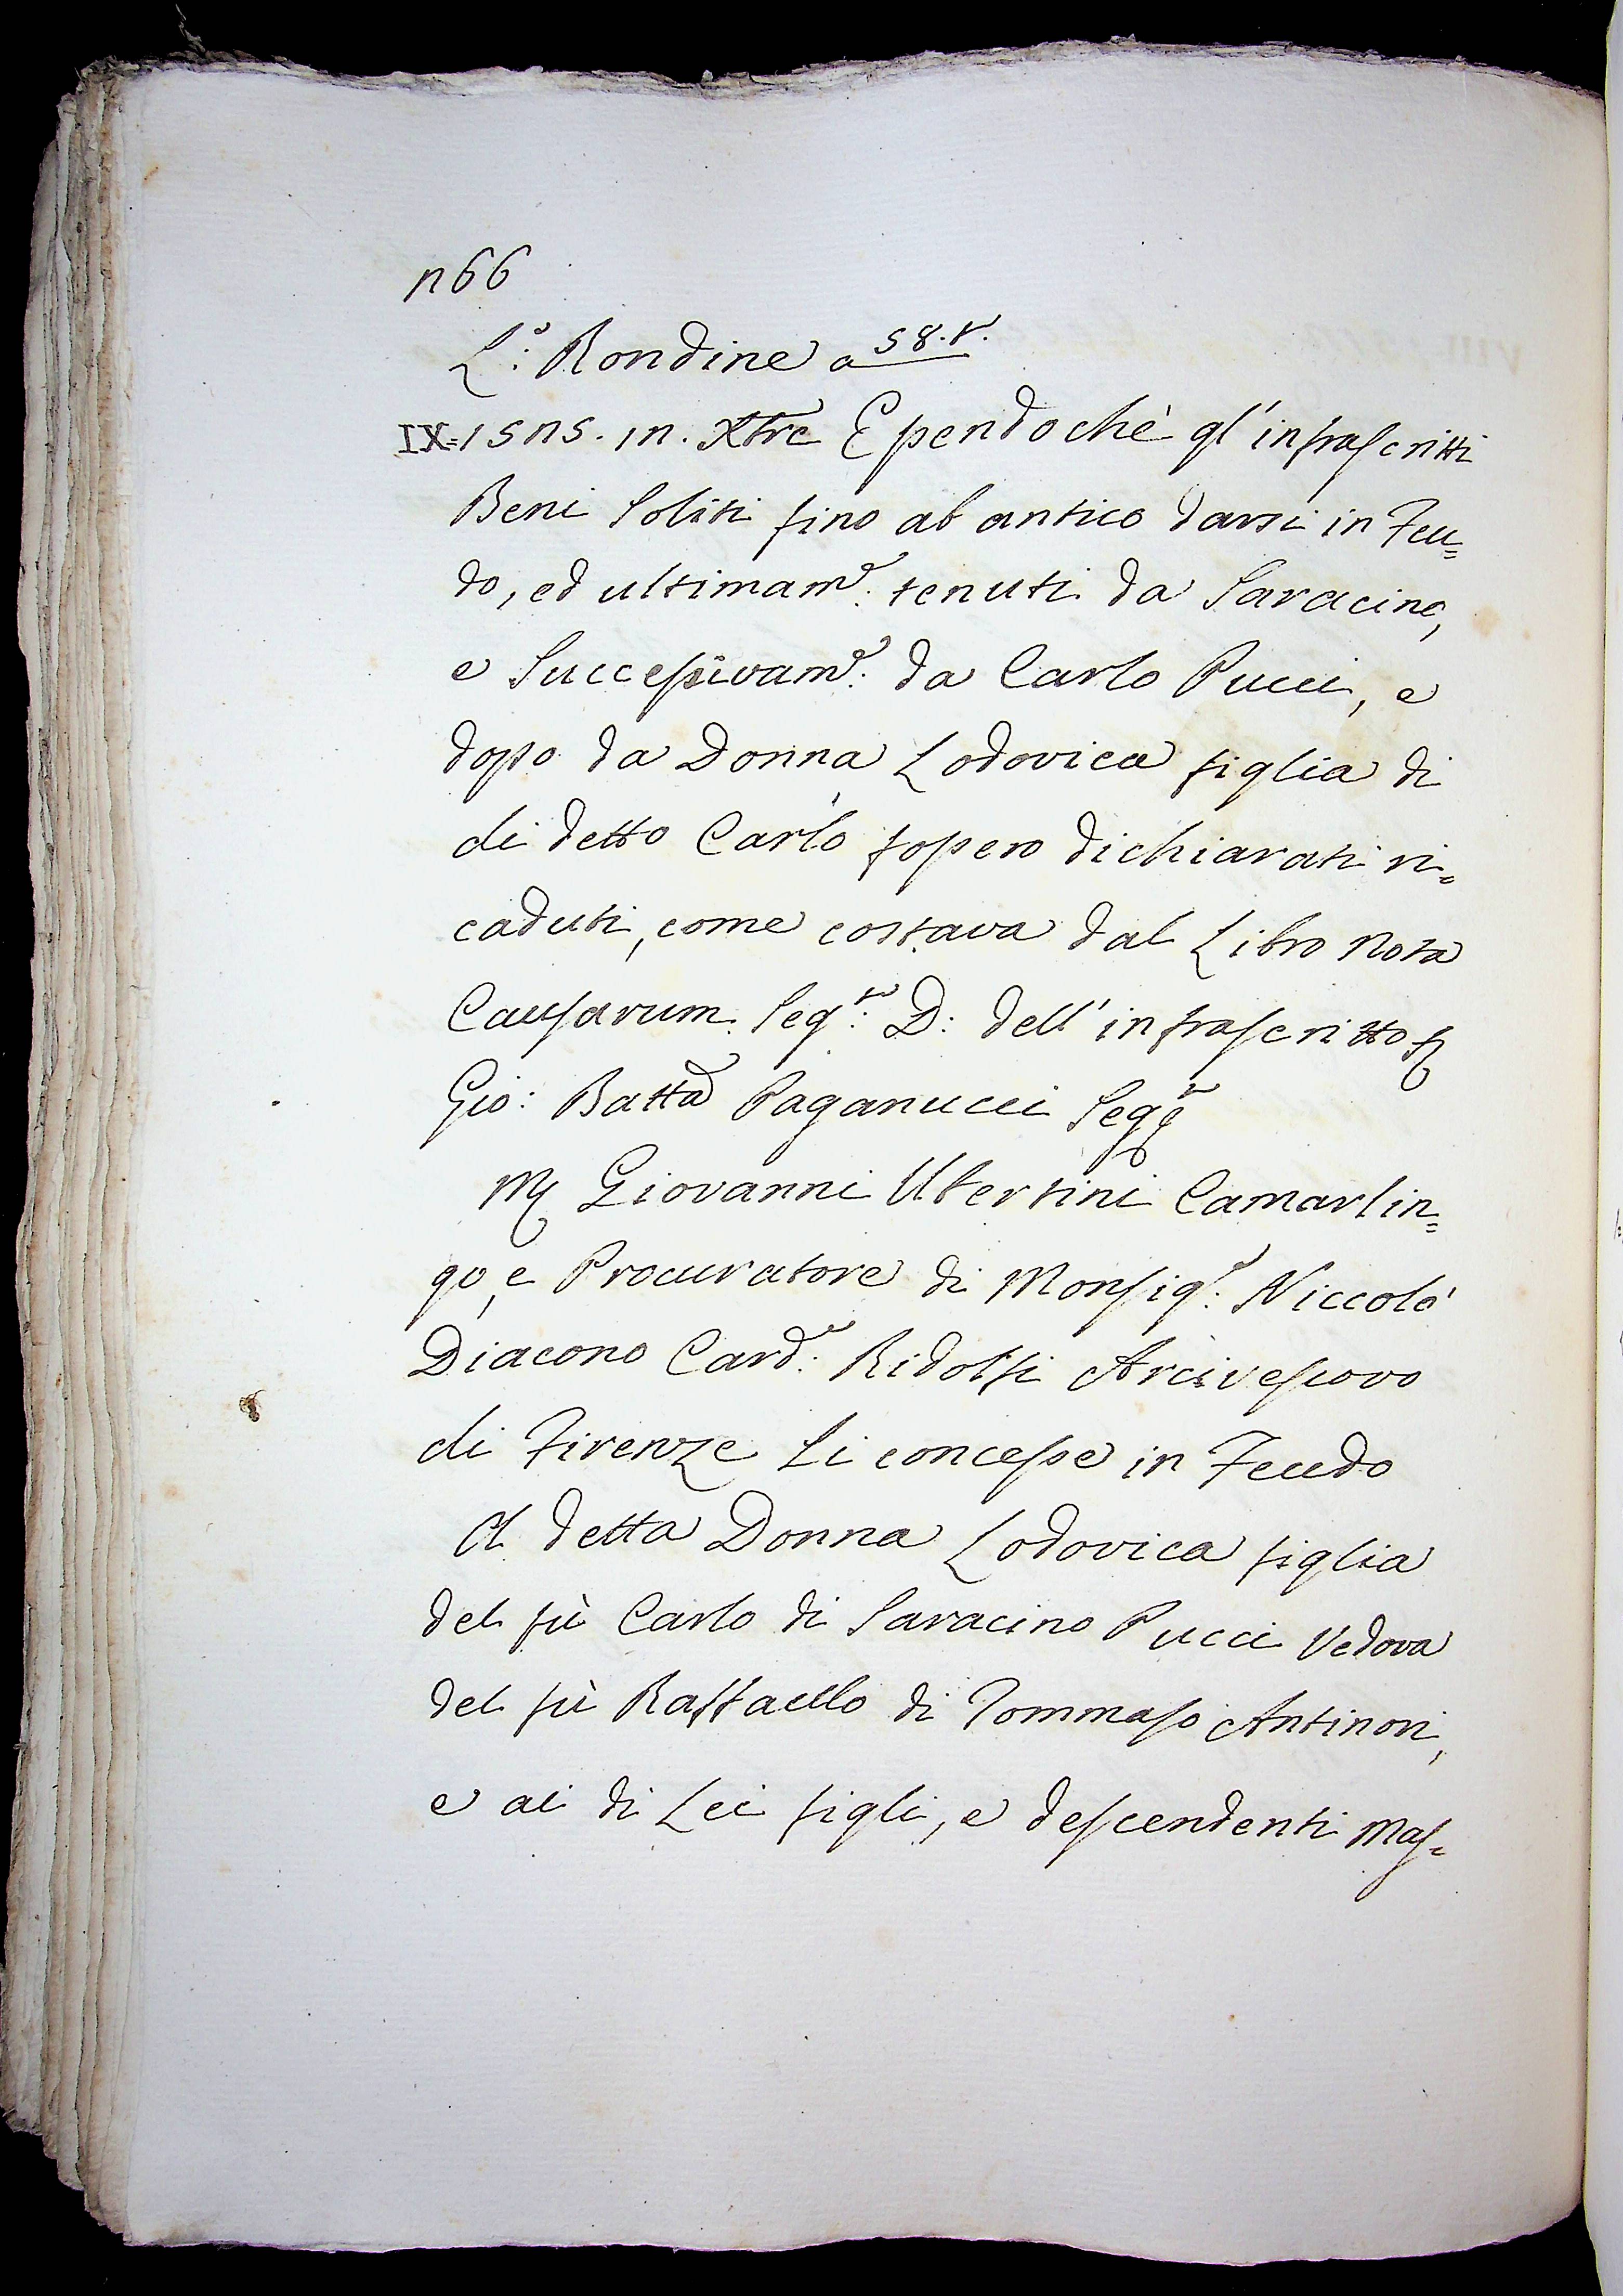 n66
L:º Rondine a 58.r.
IX=1525. 12. Xbre Essendochè gl'infrascritti
Beni Soliti fino ab antico darsi in Feu=
do, ed ultimam:e tenuti da Saracino,
e Successivam:e da Carlo Pucci, e
dopo da Donna Lodovica figlia di
di detto Carlo fossero dichiarati ri=
caduti, come costava dal Libro Nota
Causarum Seg:to D: dell'infrascritto S
Gio: Batta Paganucci Segr
M Giovanni Ubertini Camarlin=
go, e Procuratore di Monsig:r Niccolò
Diacono Card:e Ridolfi Arcivescovo
di Firenze li concesse in Feudo
A detta Donna Lodovica figlia
del fù Carlo di Saracino Pucci Vedova
del fù Raffaello di Tommaso Antinori,
e ai di Lei figli, e descendenti Mas=